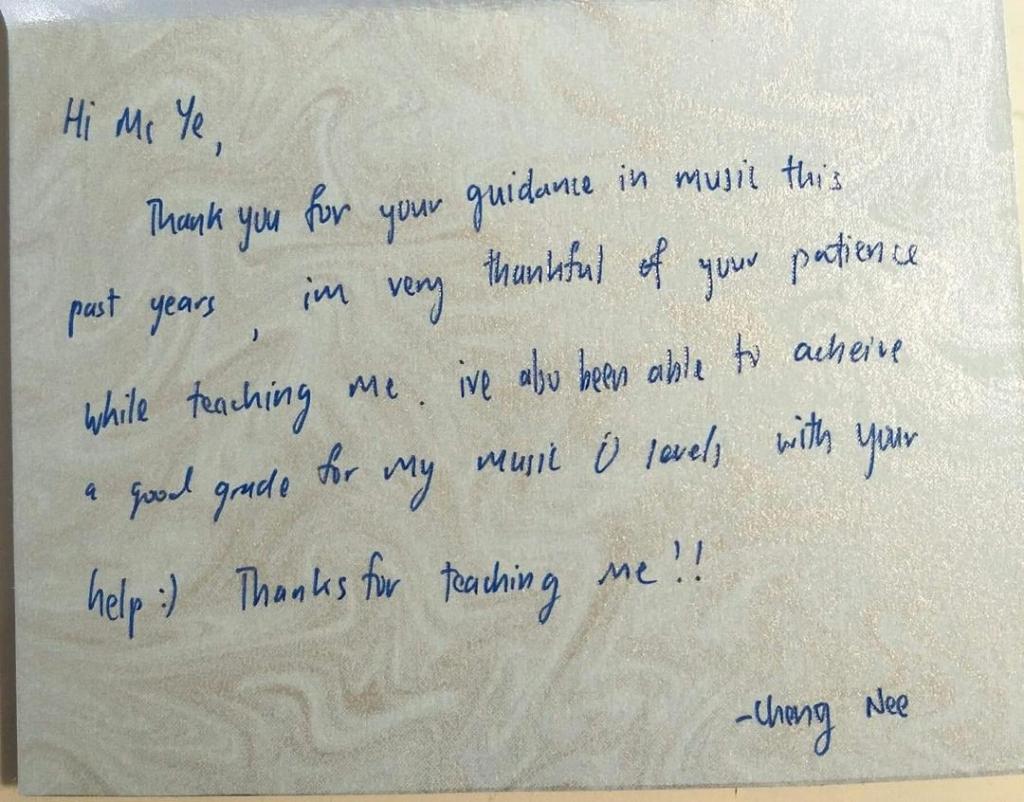 Hi Mr Ye,
Thank you for your guidance in music this
past years, im very thankful of your patience
while teaching me. ive also been able to acheive
a good grade for my music O levels with your
help :) Thanks for teaching me!!
-Cheng Nee